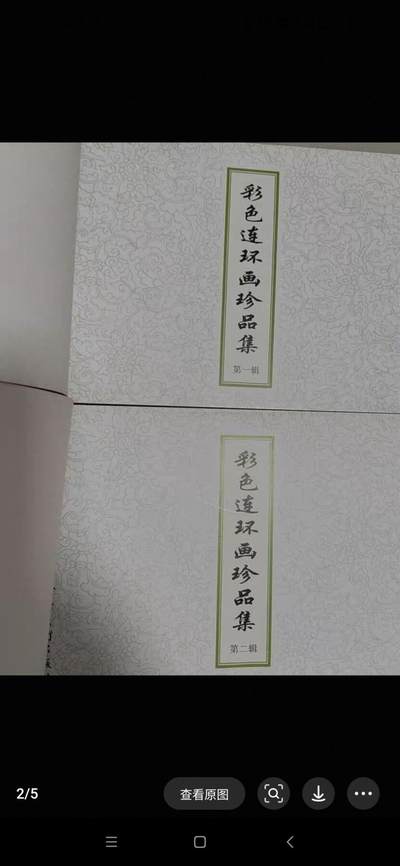 彩色连环画珍品集
第一辑
彩色连环画珍品集
第二辑
2/5
查看原图